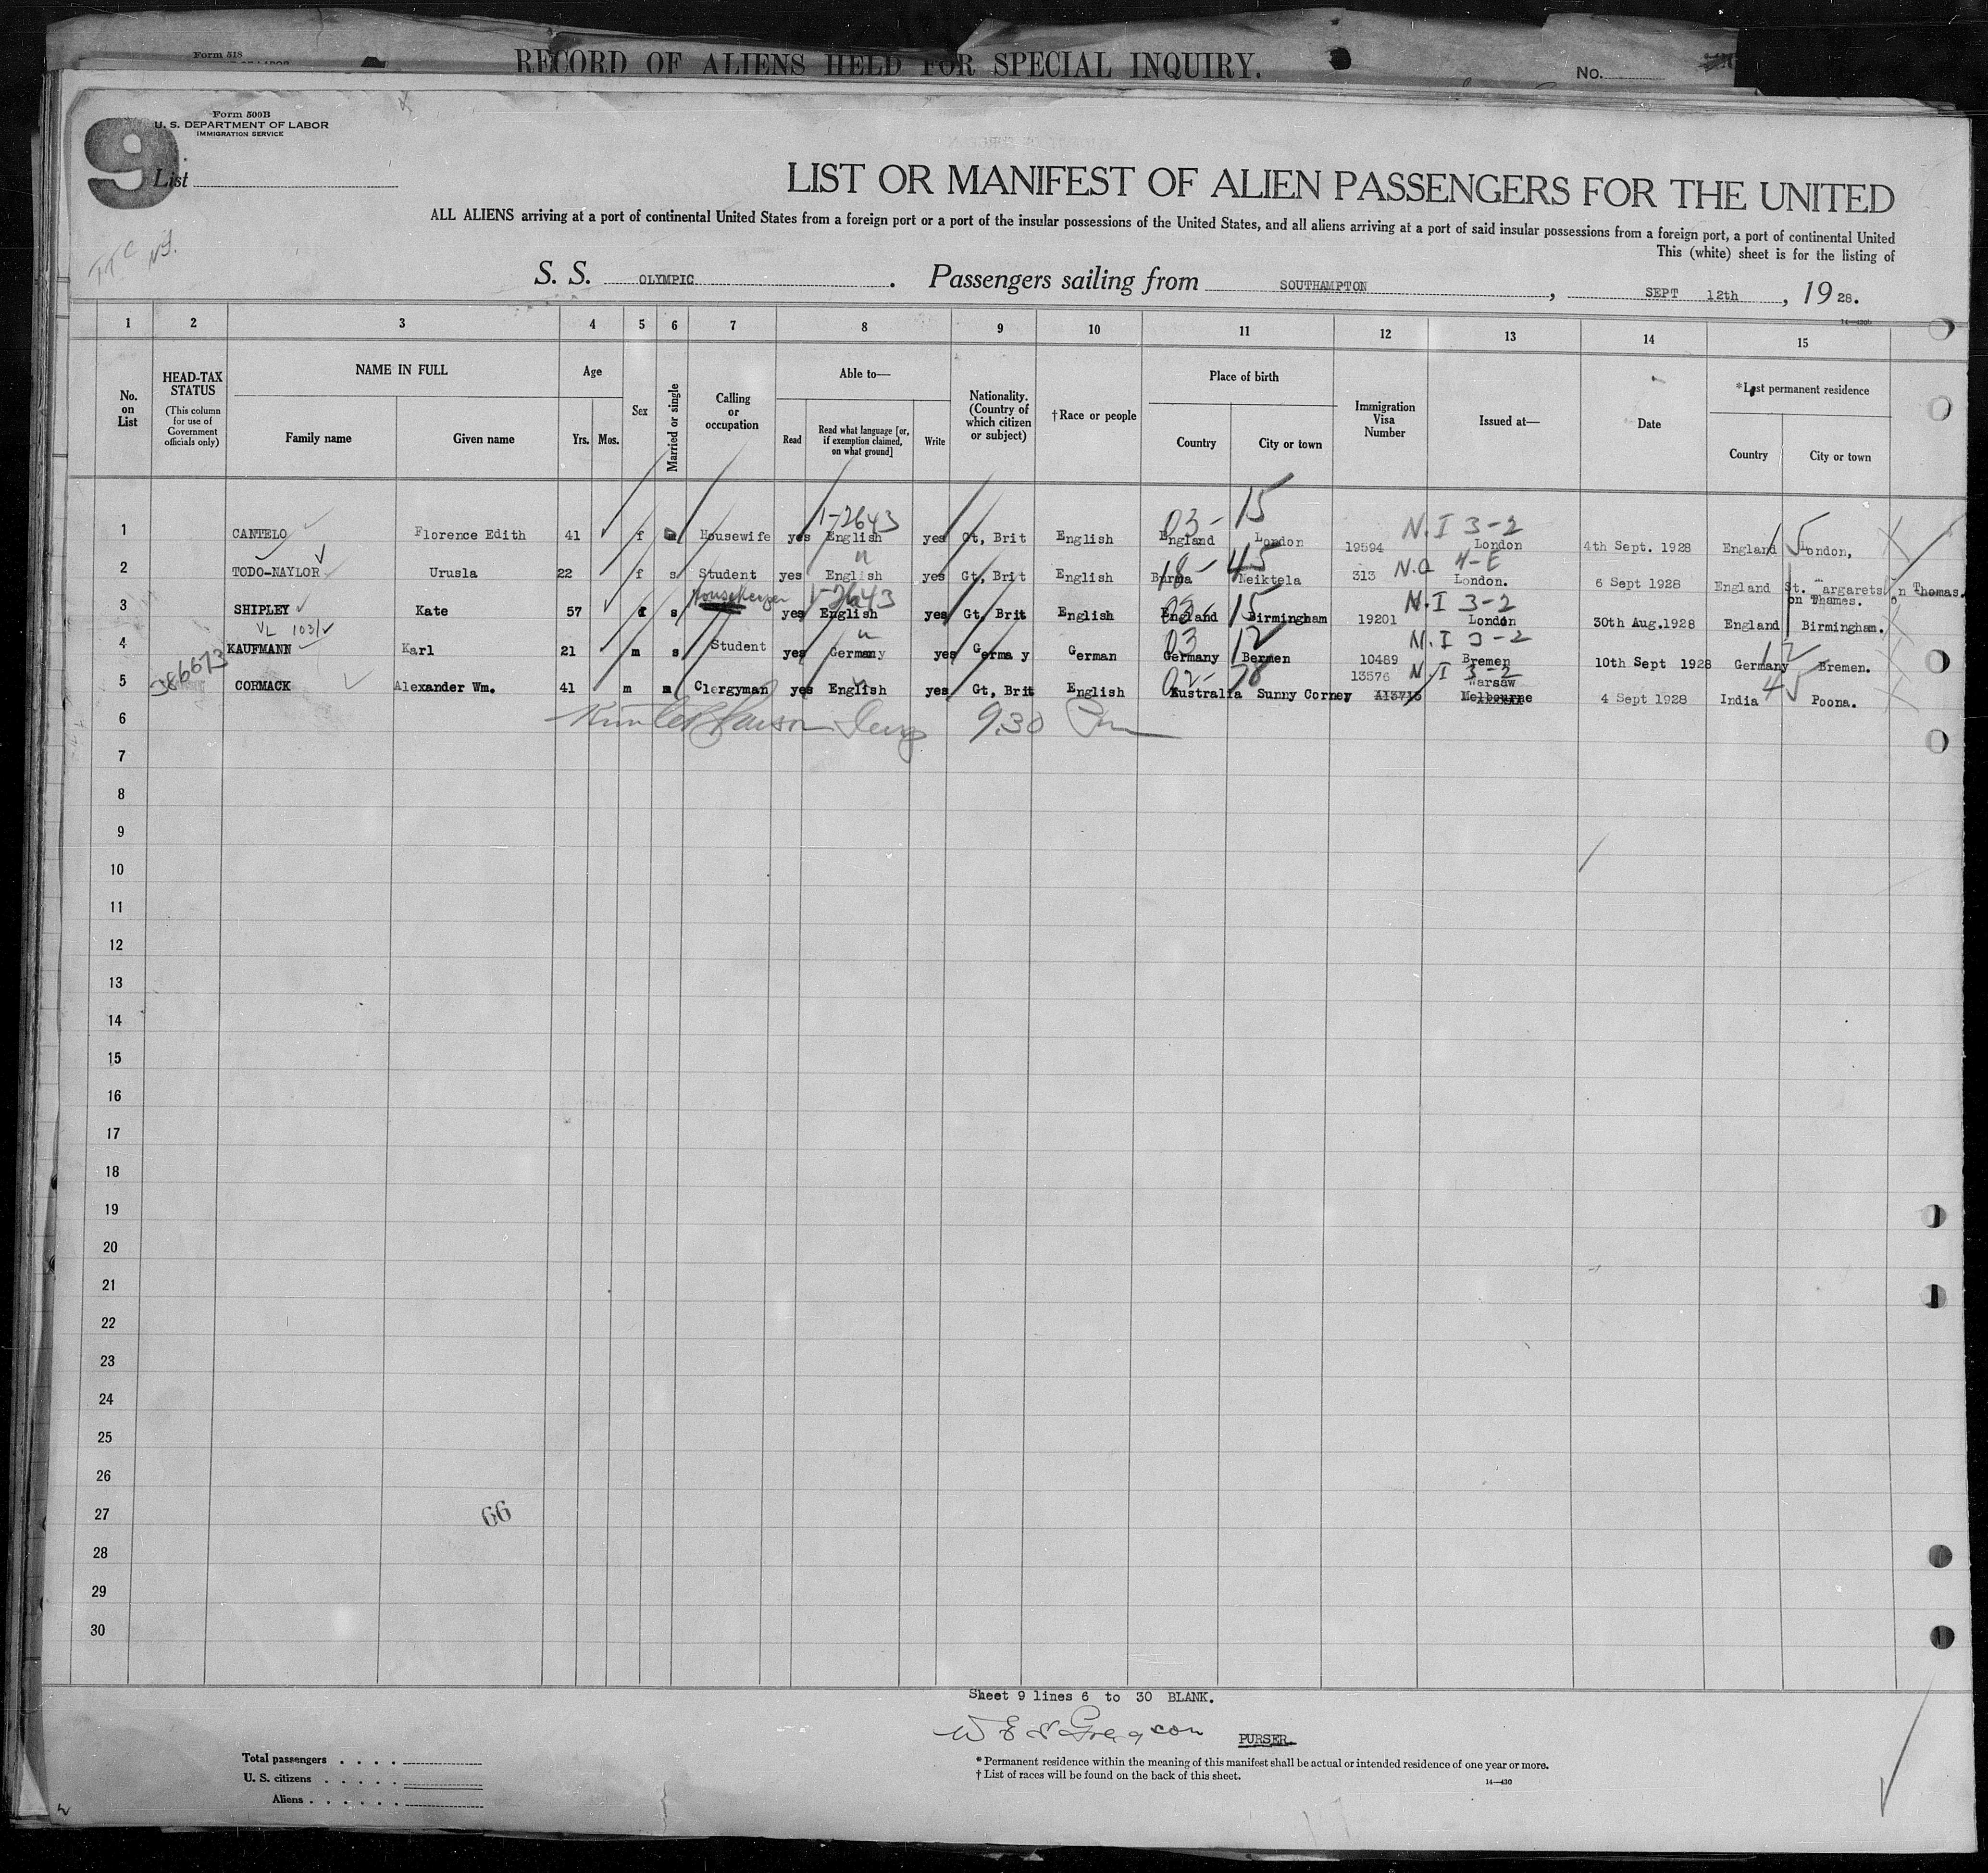 Form 518
RECORD OF ALIENS HELD FOR SPECIAL INQUIRY.
No.
9
Form 500B
U. S. DEPARTMENT OF LABOR
IMMIGRATION SERVICE
List
LIST OR MANIFEST OF ALIEN PASSENGERS FOR THE UNITED
ALL ALIENS arriving at a port of continental United States from a foreign port or a port of the insular possessions of the United States, and all aliens arriving at a port of said insular possessions from a foreign port, a port of continental United
This (white) sheet is for the listing of
S. S. OLYMPIC . Passengers sailing from SOUTHAMPTON , SEPT 12th , 19 28.
1 2 3 4 5 6 7 8 9 10 11 12 13 14 15
No. on List
HEAD-TAX STATUS (This column for use of Government officials only)
NAME IN FULL
Family name Given name
Age
Yrs. Mos.
Sex
Married or single
Calling or occupation
Able to—
Read Read what language [or, if exemption claimed, on what ground] Write
Nationality. (Country of which citizen or subject)
†Race or people
Place of birth
Country City or town
Immigration Visa Number
Issued at—
Date
*Last permanent residence
Country City or town
1-2643 03- 15 N.I 3-2
1 CANTELO Florence Edith 41 f m Housewife yes English yes Gt, Brit English England London 19594 London 4th Sept. 1928 England London,
18- 45 N.Q 4-E
2 TODO-NAYLOR Urusla 22 f s Student yes English yes Gt, Brit English Burma Neiktela 313 London. 6 Sept 1928 England St. Margarets on Thomas.
on Thames.
Housekeeper 1-2643 03- 15 N.I 3-2
3 SHIPLEY Kate 57 f s yes English yes Gt, Brit English England Birmingham 19201 London 30th Aug.1928 England Birmingham.
VL 103/ 03 12 N.I 3-2 12
4 KAUFMANN Karl 21 m s Student yes Germany yes Germa y German Germany Bermen 10489 Bremen 10th Sept 1928 Germany Bremen.
386673 02- 78 13576 N.I 3-2 Warsaw 45
5 CORMACK Alexander Wm. 41 m m Clergyman yes English yes Gt, Brit English Australia Sunny Corner A13715 Melbourne 4 Sept 1928 India Poona.
6 9.30 Pm
7
8
9
10
11
12
13
14
15
16
17
18
19
20
21
22
23
24
25
26
27
66
28
29
30
Sheet 9 lines 6 to 30 BLANK.
W E S Gregson PURSER
Total passengers . . . .
U. S. citizens . . . . .
Aliens . . . . . .
* Permanent residence within the meaning of this manifest shall be actual or intended residence of one year or more.
† List of races will be found on the back of this sheet.
14—430